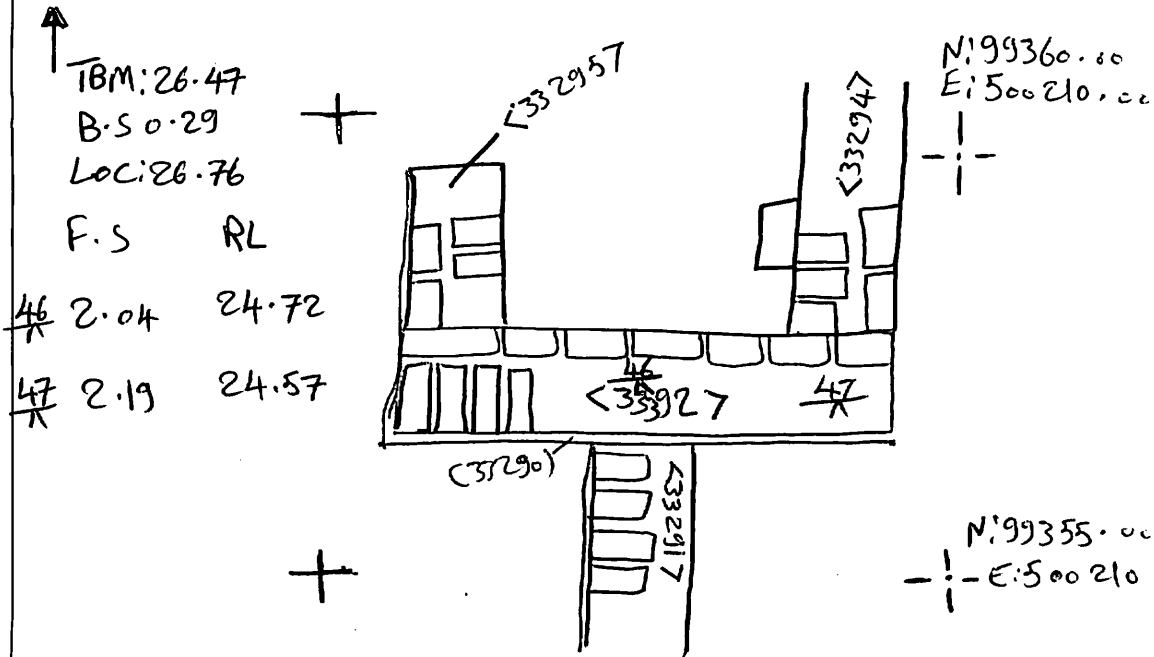 TBM: 26.47
B.S 0.29
LOC: 26.76
F.S RL
46 2.04 24.72
47 2.19 24.57
<332957
<332947>
N: 99360.00
E: 500210.00
46
47
<332917
N: 99355.00
E: 500210